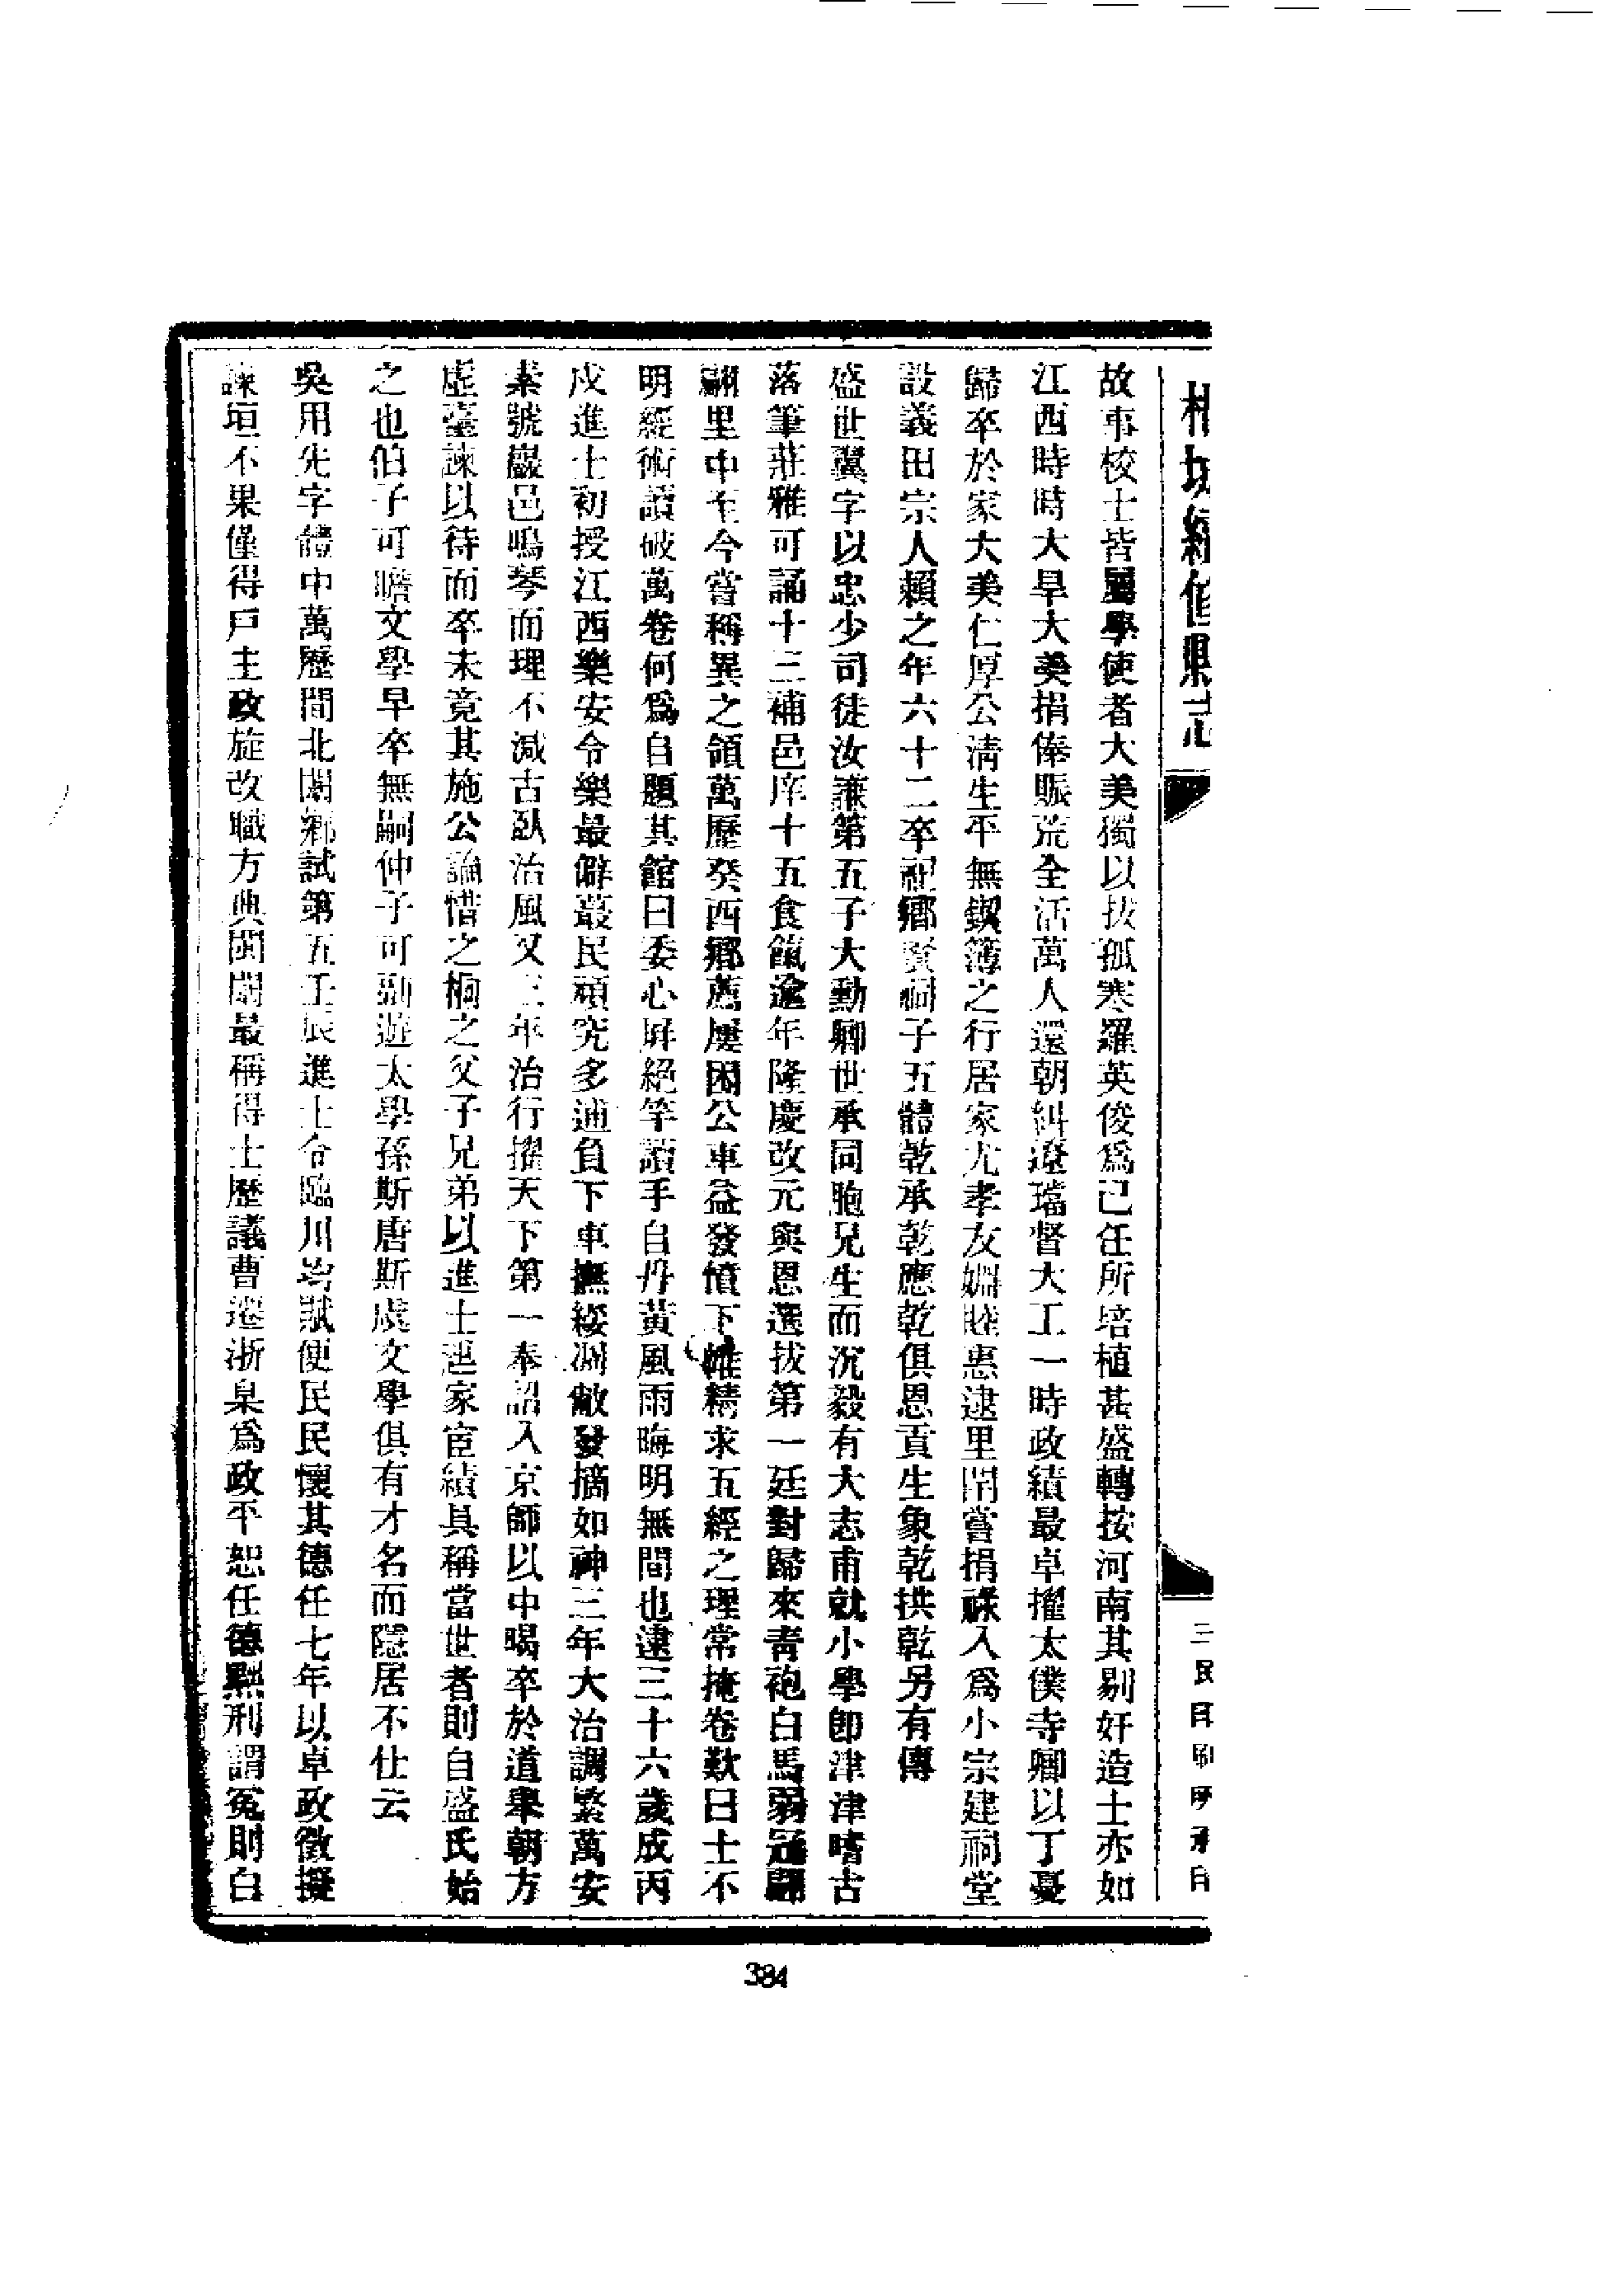 桐城續修縣志
三民印刷所承印
故事校士皆屬學使者大美獨以拔孤寒羅英俊爲己任所培植甚盛轉按河南其剔奸造士亦如
江西時時大旱大美捐俸賑荒全活萬人還朝糾遼璫督大工一時政績最卓擢太僕寺卿以丁憂
歸卒於家大美仁厚公清生平無鍥簿之行居家尤孝友婣睦惠逮里閈嘗捐祿入爲小宗建祠堂
設義田宗人賴之年六十二卒祀鄉賢祠子五體乾承乾應乾俱恩貢生象乾拱乾另有傳
盛世翼字以忠少司徒汝謙第五子大勳卿世承同胞兄生而沉毅有大志甫就小學卽津津嗜古
落筆莊雅可誦十三補邑庠十五食餼逾年隆慶改元與恩選拔第一廷對歸來靑袍白馬弱冠翩
翩里中至今嘗稱異之領萬歷癸酉鄉薦屢困公車益發憤下帷精求五經之理常掩卷歎曰士不
明經術讀破萬卷何爲自題其館曰委心屏絕竿牘手自丹黃風雨晦明無間也逮三十六歲成丙
戍進士初授江西樂安令樂最僻叢民頑究多逋負下車撫綏凋敝發摘如神三年大治調繁萬安
素號巖邑鳴琴而理不減古臥治風又三年治行擢天下第一奉詔入京師以中暍卒於道舉朝方
虛臺諫以待而卒未竟其施公論惜之桐之父子兄弟以進士起家宦績具稱當世者則自盛氏始
之也伯子可瞻文學早卒無嗣仲子可副遊太學孫斯唐斯虞文學俱有才名而隱居不仕云
吳用先字體中萬歷間北闈鄉試第五壬辰進士令臨川均賦便民民懷其德任七年以卓政徵擬
諫垣不果僅得戶主政旋改職方典閩闈最稱得士歷議曹遷浙臬爲政平恕任德黜刑謂冤則白
384